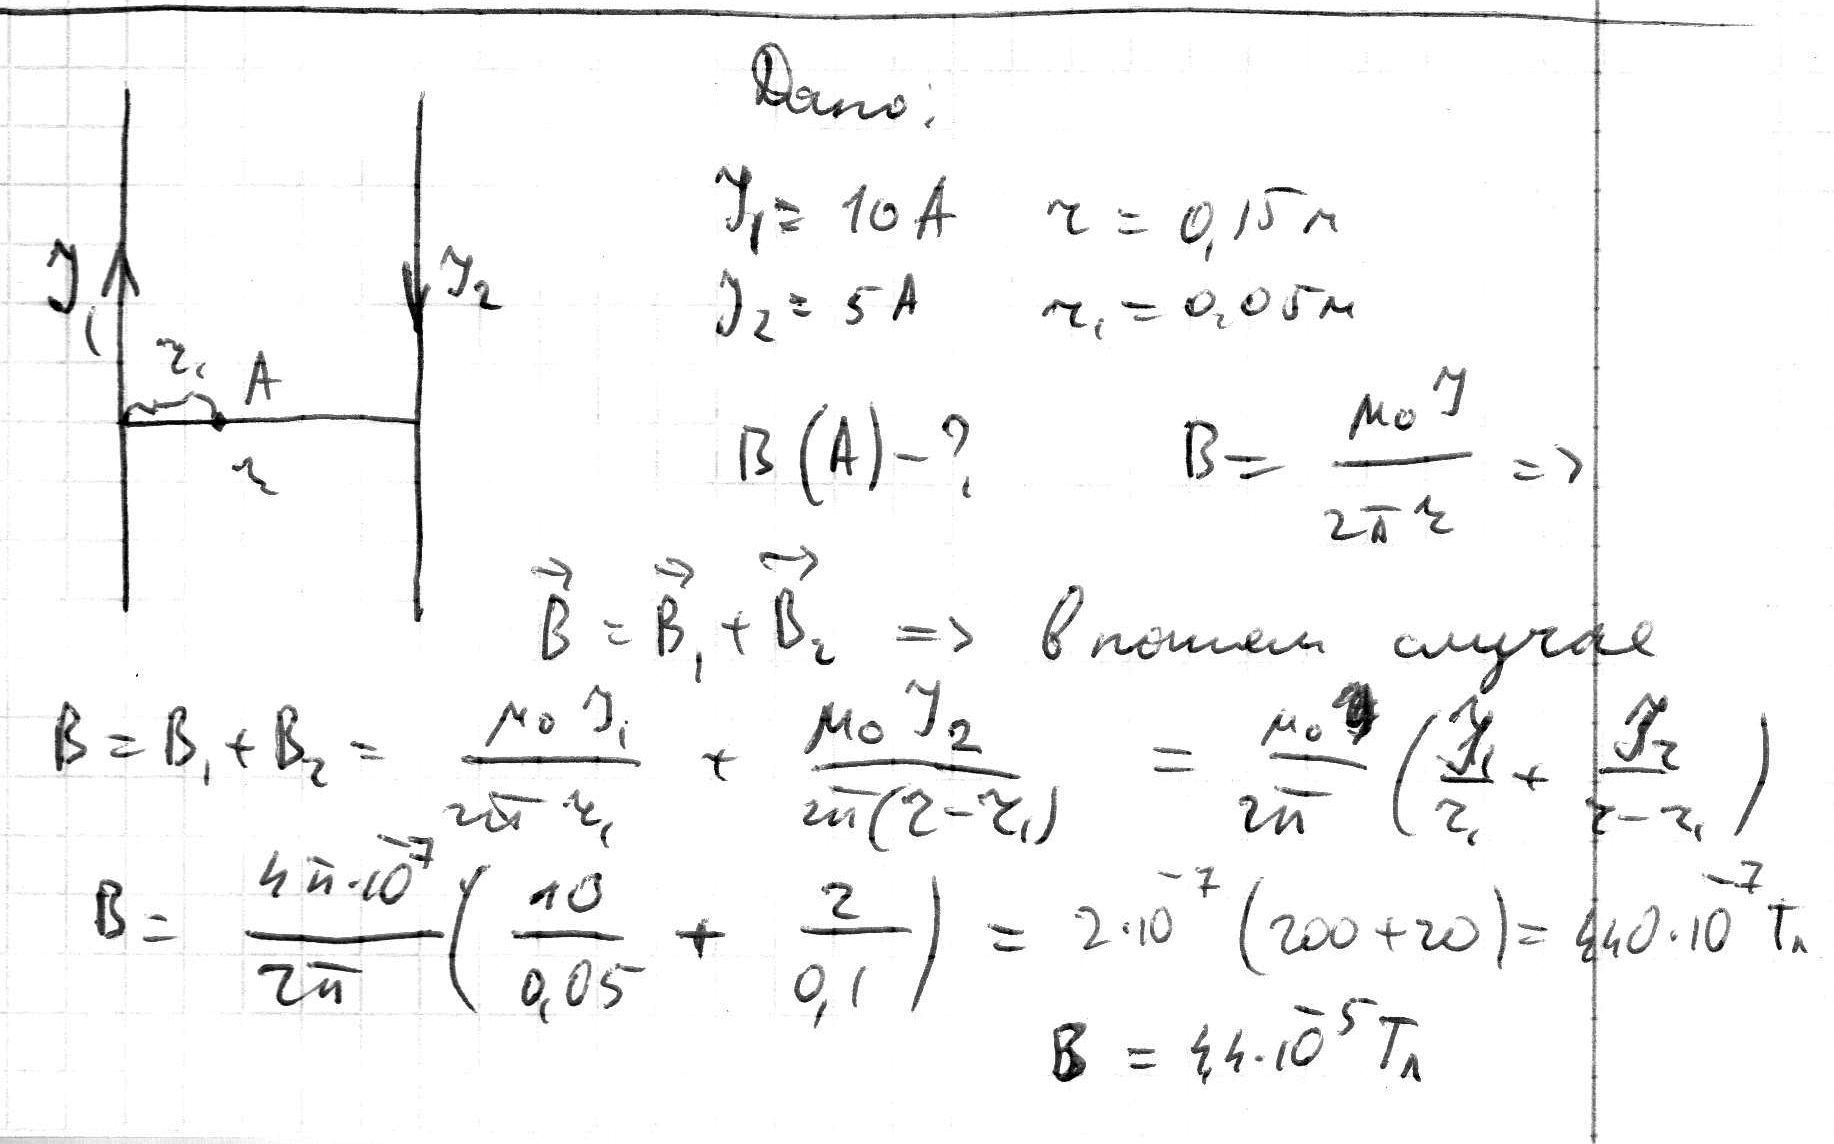 Дано:
J₁ = 10 А r = 0,15 м
J₂ = 5 А r₁ = 0,05 м
J₁ J₂
r₁ A
r
B(A) - ? B = μ₀J / 2πr =>
B⃗ = B⃗₁ + B⃗₂ => в нашем случае
B = B₁ + B₂ = μ₀J₁ / 2π r₁ + μ₀J₂ / 2π(r - r₁) = μ₀ / 2π (J₁ / r₁ + J₂ / r - r₁)
B = 4π·10⁻⁷ / 2π (10 / 0,05 + 2 / 0,1) = 2·10⁻⁷ (200 + 20) = 440·10⁻⁷ Тл
B = 4,4·10⁻⁵ Тл